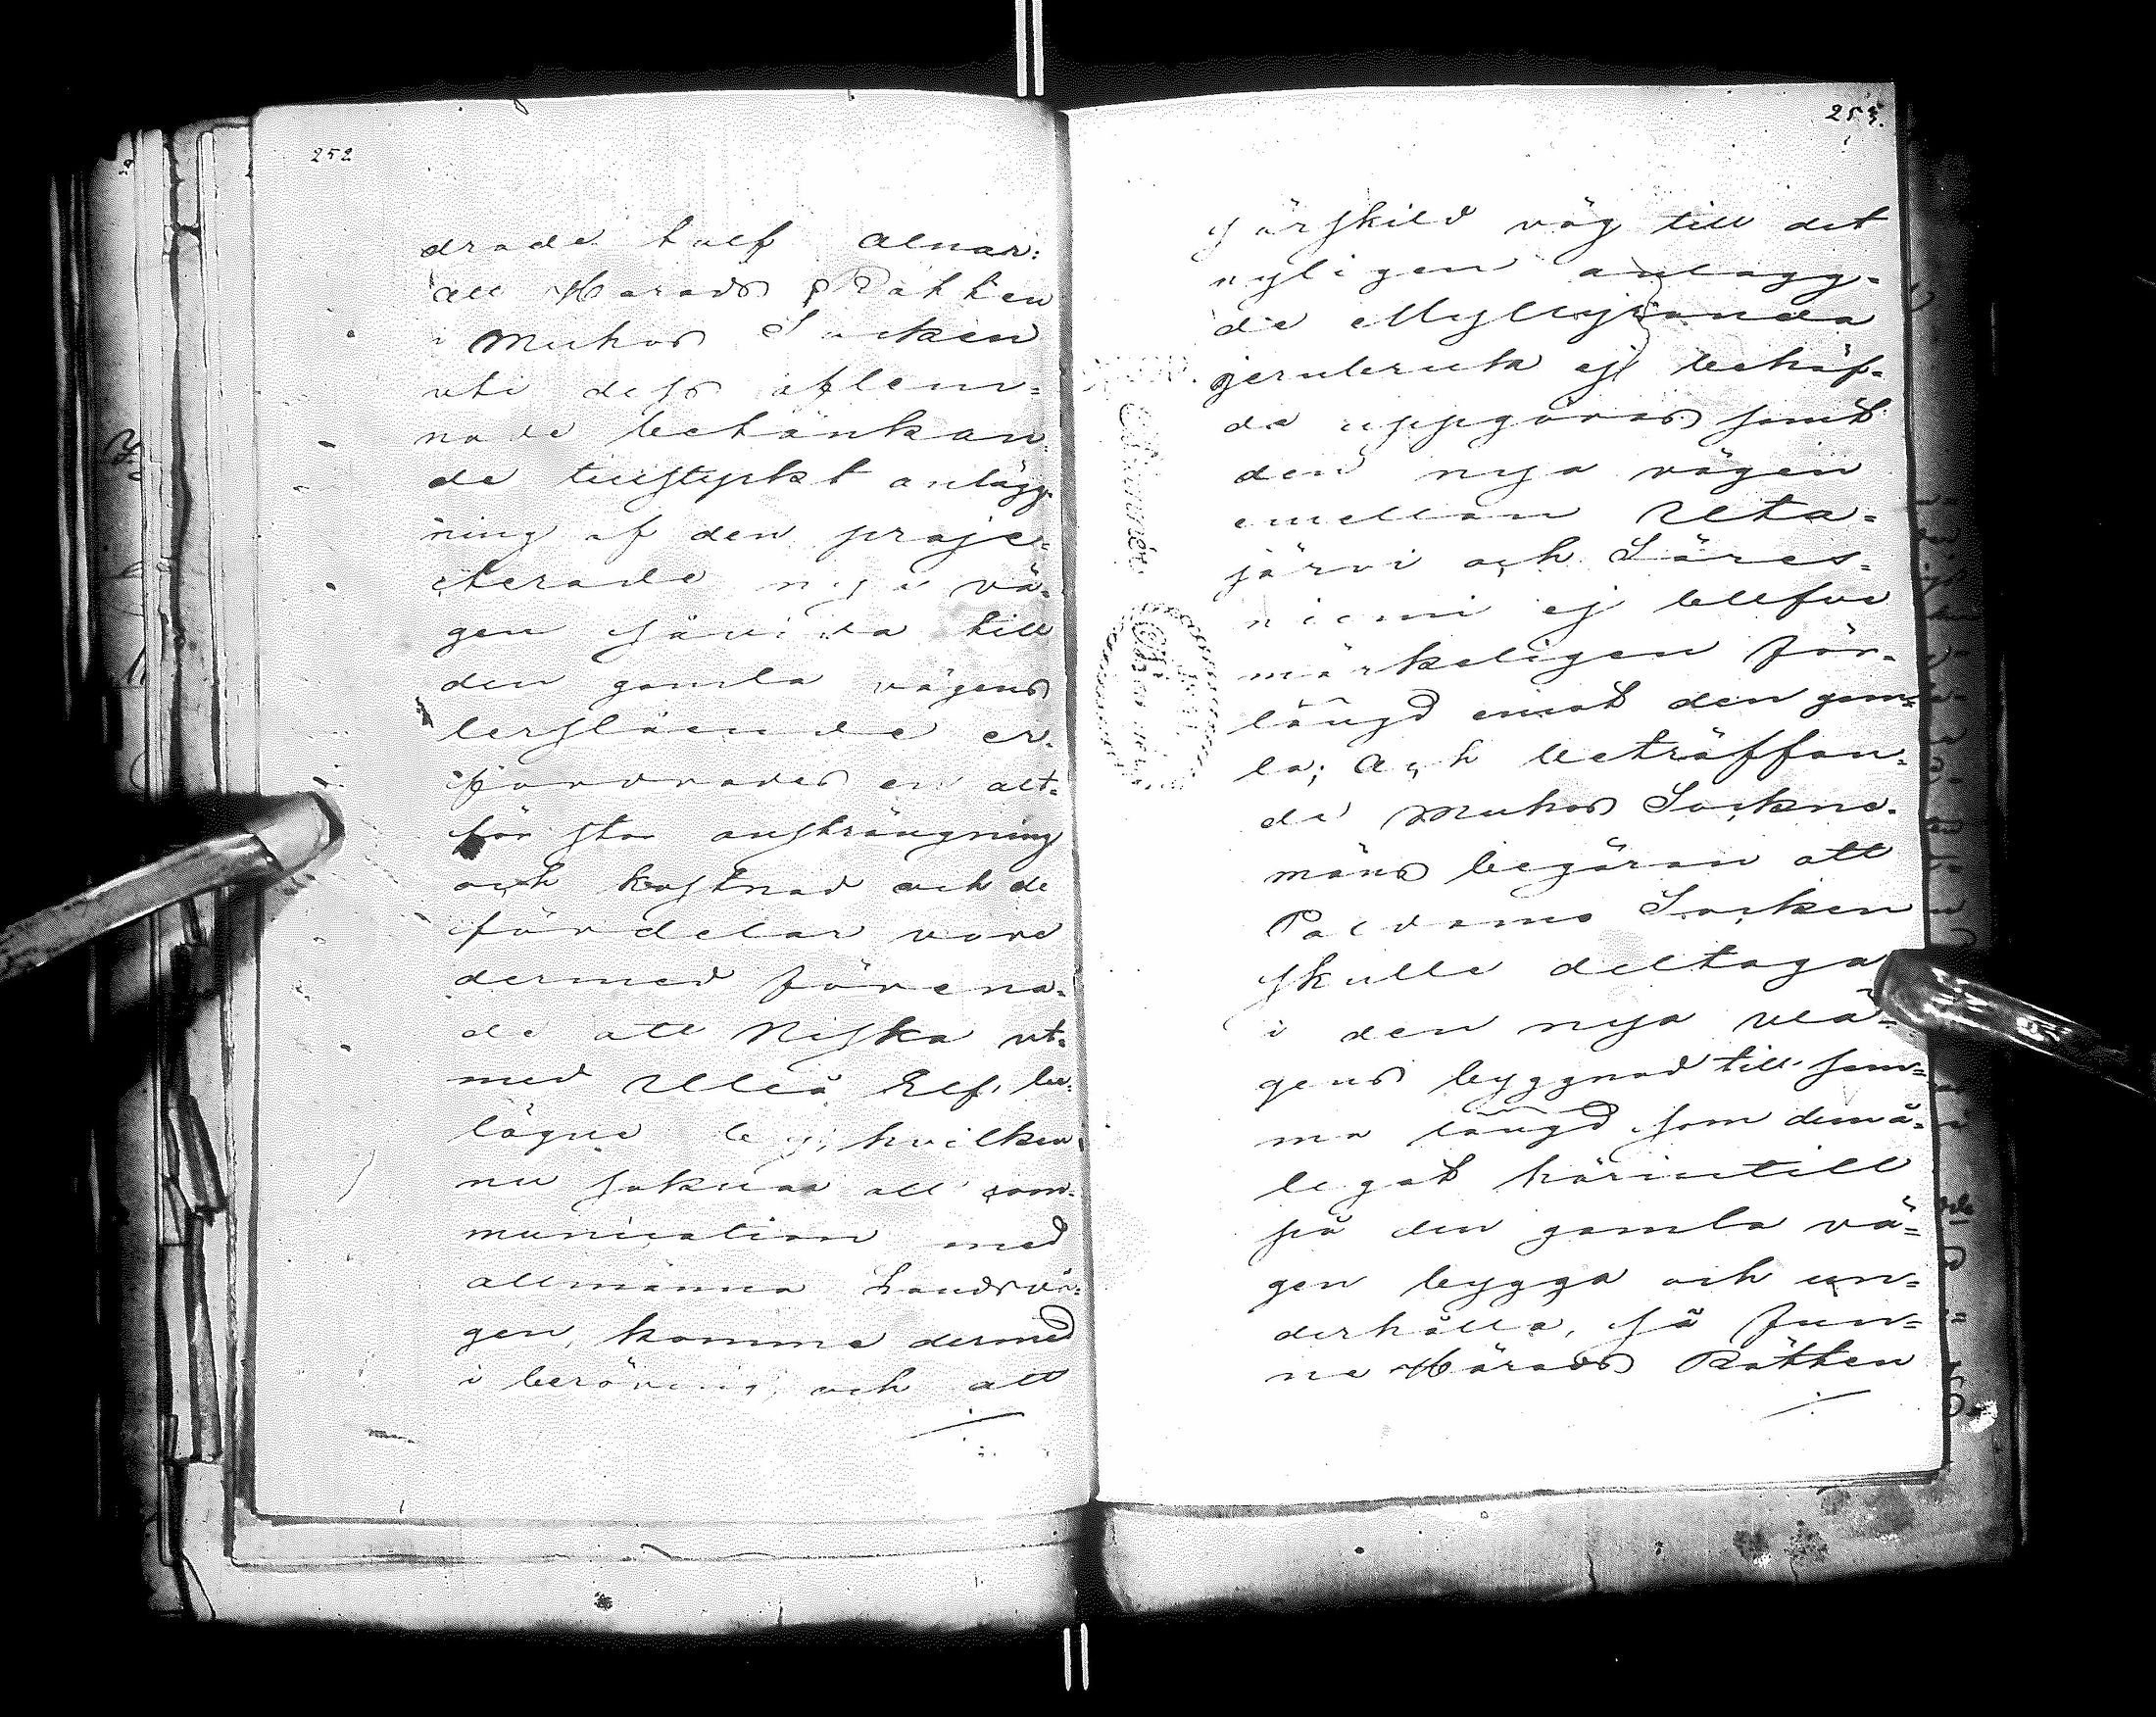 252
drade tolf alnar:
att Härads Rätten
i Muhos Socken
uti dess aflem=
nade betänkan
de tillstyrkt anlägg
ning af den proje=
cterade nya vä=
gen såvida till
den gamla vägens
bestående er=
fordrades en allt=
för stor ansträngning
och kostnad och de
fördelar vore
dermed förena=
de att Niska ut=
med Uleå Elf be=
lägne by, hvilken
nu saknar all com=
munication med
allmänna Landsvä=
gen, komme dermed
i beröring, och att
253.
särskild väg till det
nyligen anlagg=
de Myllyranda
jernbruk ej behöf=
de uppgöras samt
den nya vägen
emellan Uta=
järvi och Säres=
niemi ej blefve
märkeligen för=
längd emot den gam=
la; och beträffan=
de Muhos Sockne=
mäns begäran att
Paldamo Socken
skulle deltaga
i den nya vä=
gens byggnad till sam=
ma längd som dem å=
legat härintill
på den gamla vä=
gen bygga och un=
derhålla, så fun=
ne Härads Rätten